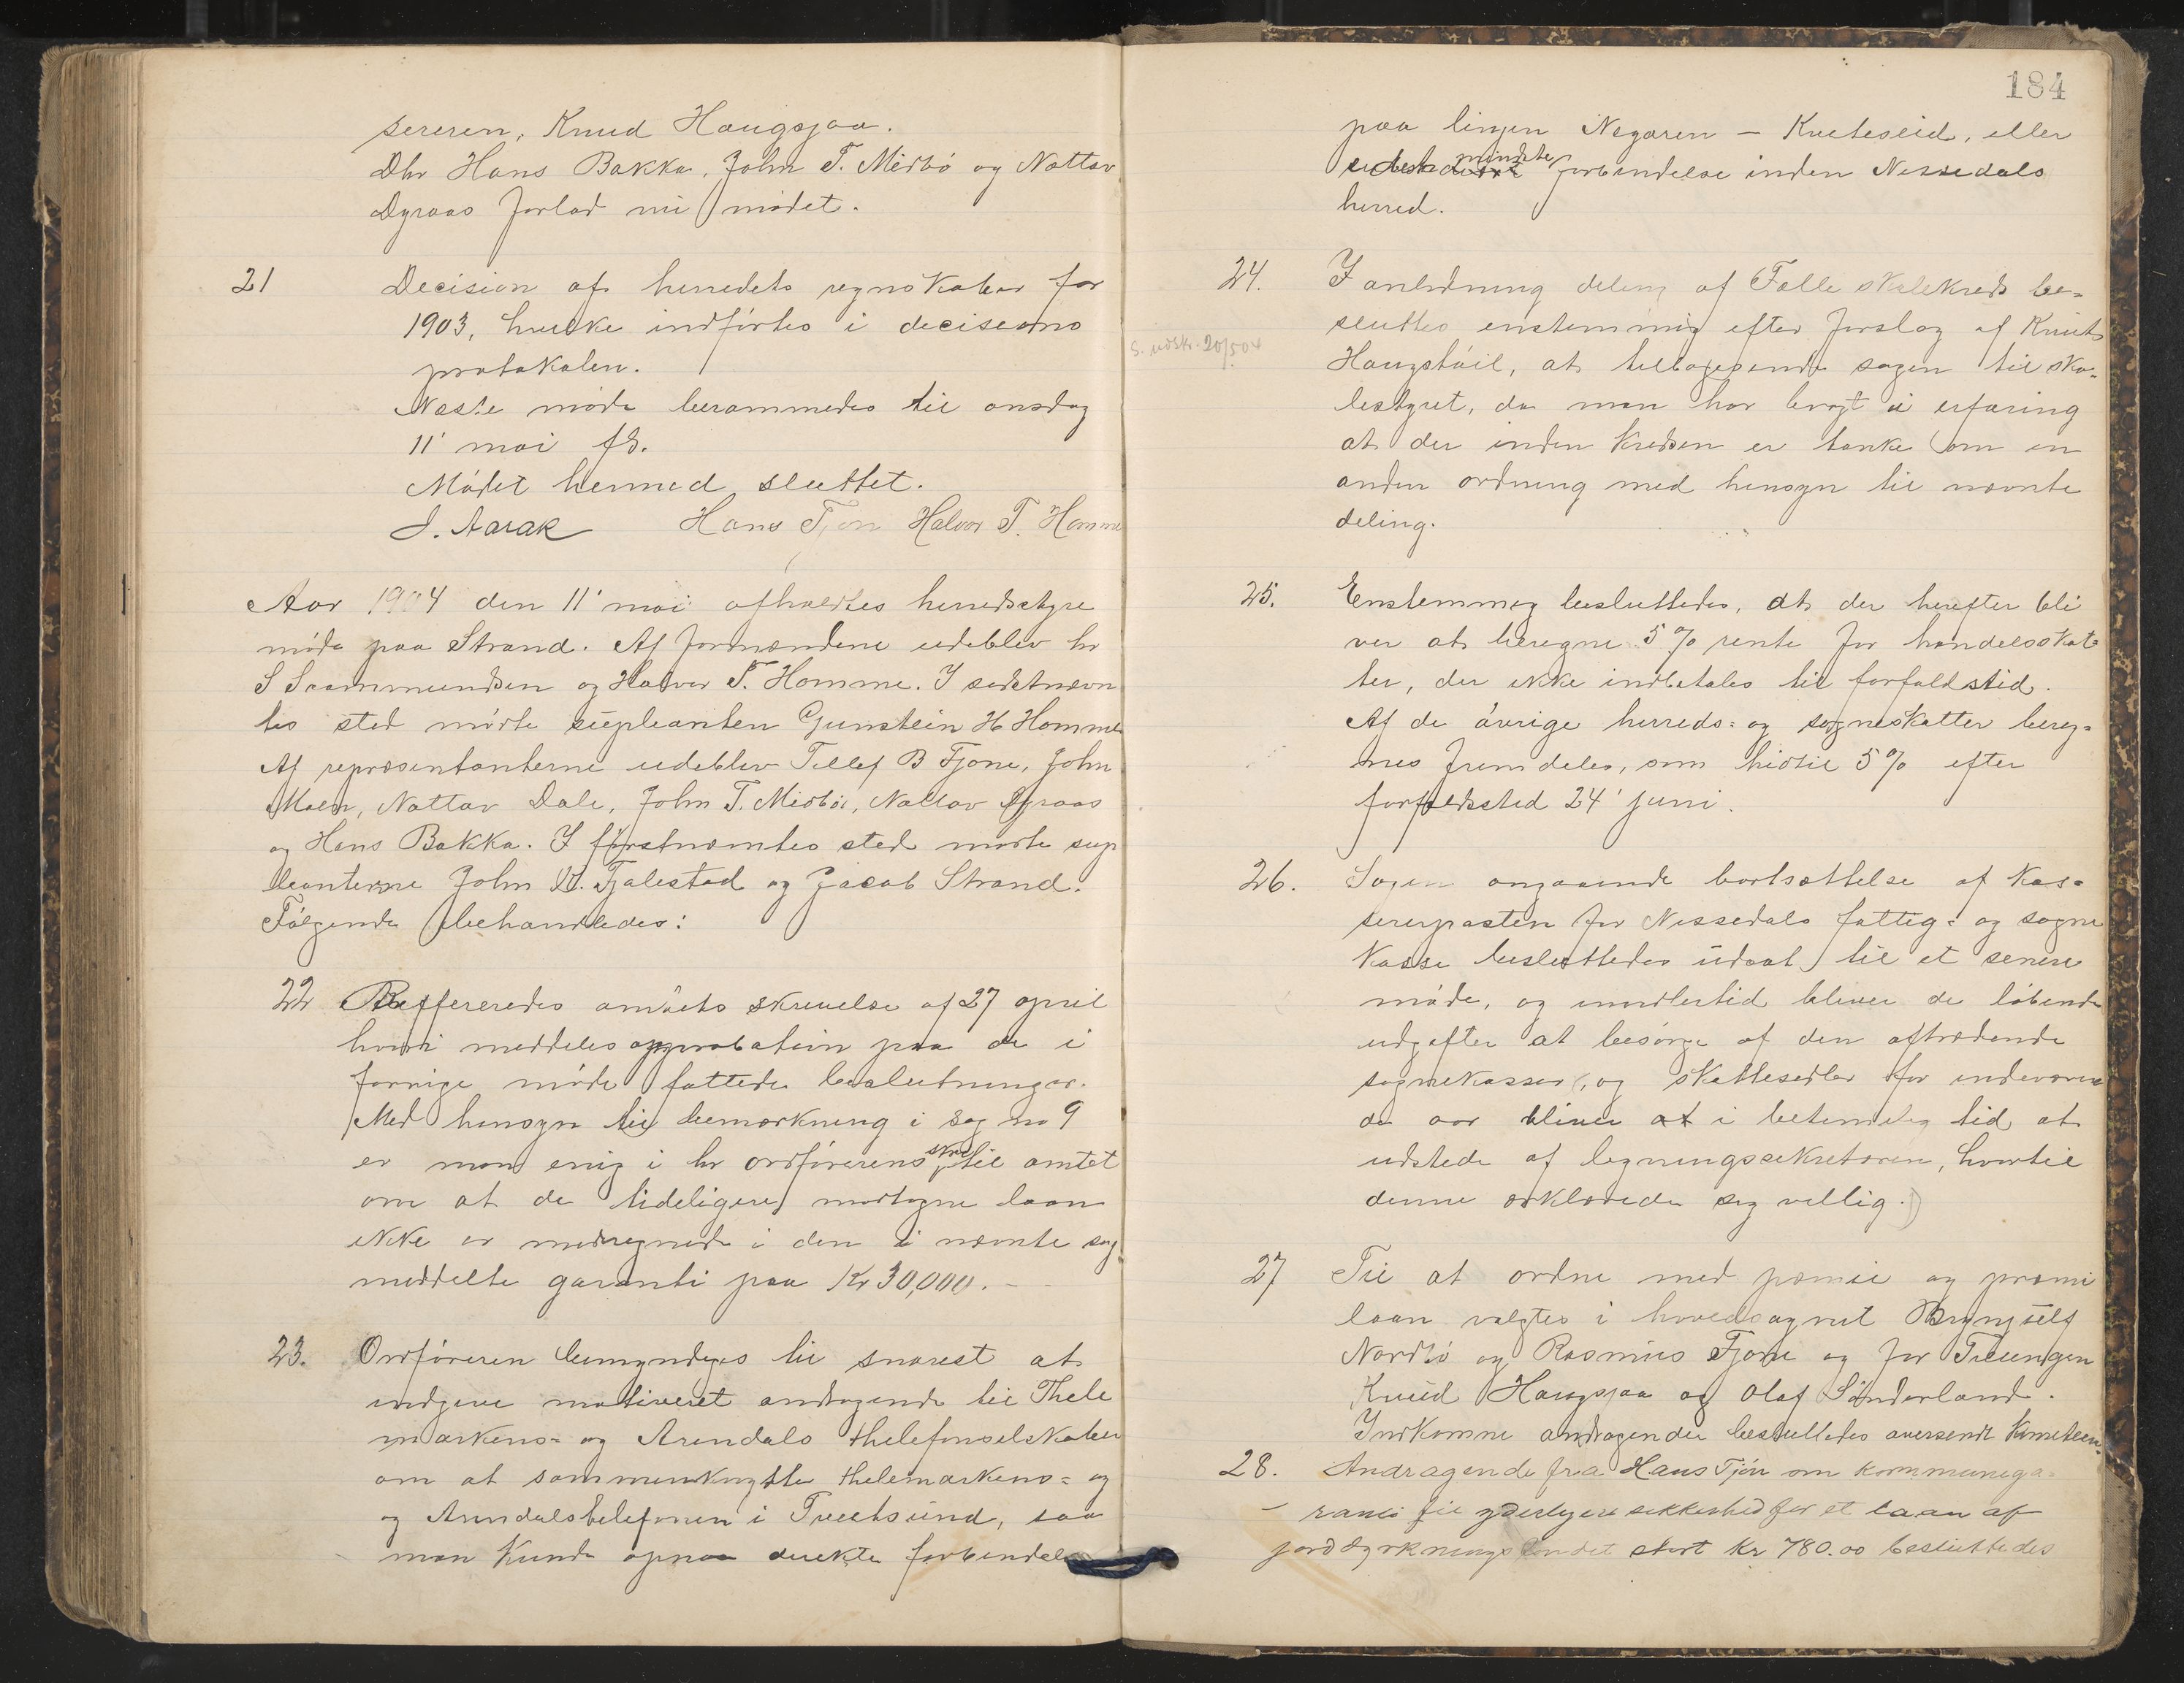 sereren, Knud Haugsjaa.
Dhr Hans Bakka, John T. Midbö og Nottov
Dyraas forlod nu mödet.
21 Decision af herredets regnskaber for
1903, hvilke indförtes i decisions
protokolen.
Næste möde berammedes til onsdag
11' mai fs.
Mödet hermed sluttet.
J. Aarak Hans Tjön Halvor T. Homme
Aar 1904 den 11' mai afholdtes herredsstyre
möde paa Strand. Af formændene udeblev hr
S Saammundsen og Halvor T. Homme. I sidstnævn
tes sted mödte supleanten Gunstein H Homme
Af repræsentanterne udeblev Tellef B Fjone, John
Moen, Nottov Dale, John T. Midbö, Nottov Dyraas
og Hans Bakka. I förstnævntes sted mödte sup
leanterne John D. Tjalestad og Jacob Strand.
Fölgende behandledes:
22 Reffereredes amtets skrivelse af 27 april
hvori meddeles approbation paa de i
forrige möde fattede beslutninger.
Med hensyn til bemærkning i sag no 9
er man enig i hr ordförerens skr til amtet
om at de tideligere modtagne laan
ikke er medregnede i den i nævnte sag
meddelte garanti paa Kr 30,000. –
23. Ordföreren bemyndiges til snarest at
indgive motiveret andragende til Thele
markens- og Arendals thelefonselskaber
om at sammenknytte thelemarkens- og
og Arendalstelefonen i Tveitsund, saa
man kunde opnaa direkte forbindelse
184
paa linjen Negaren – Kviteseid, eller
mindste forbindelse inden Nissedals
herred.
24. I anledning deling af Felle skolekreds be-
sluttes enstemmig efter forslag af Knut
Haugstöil, at tilbagesende sagen til sko-
lestyret, da man har bragt i erfaring
at der inden kredsen er tanke om en
anden ordning med hensyn til nævnte
deling.
S. udskr. 20/5 04
25. Enstemmig besluttedes, at der herefter bli
ver at beregne 5 % rente for handelsskat
ter, der ikke indbetales til forfaldstid.
Af de övrige herreds- og sogneskatter bereg-
nes fremdeles, som hidtil 5% efter
forfaldstid 24' juni.
26. Sagen angaaende bortsættelse af kas-
sererposten for Nissedals fattig- og sogne
kasse besluttedes udsat til et senere
möde, og imidlertid bliver de löbende
udgifter at besörge af den aftrædende
sognekasser, og skattesedler for indeværen
de aar bliver at i betimelig tid at
udstede af ligningssekretæren, hvortil
denne erklærede sig villig.
27 Til at ordne med præmie og præmi
laan valgtes i hovedsognet Brynjulf
Nordbö og Rasmus Fjone og for Treungen
Knud Haugsjaa og Olaf Sönderland.
Indkomne andragender besluttedes oversendt komiteen.
28. Andragende fra Hans Tjön om kommunega-
ranti til yderligere sikkerhed for et laan af
jorddyrkningsfondet stort kr 780.00 besluttedes